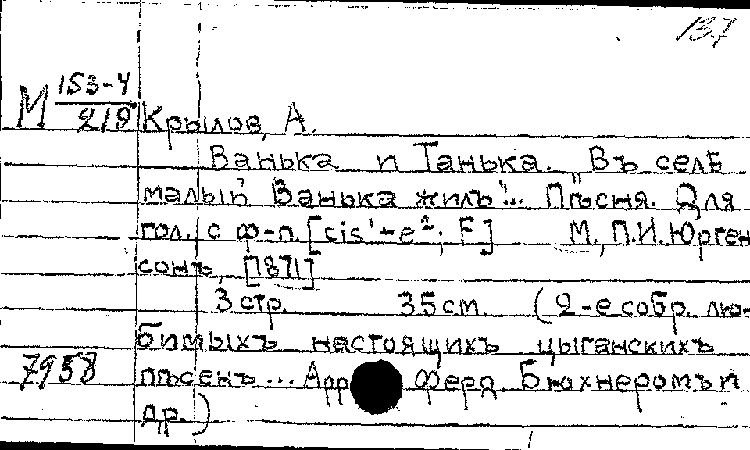 137
М 153-4
219 Крылов, А.
Ванька и Танька. "Въ селѣ
малый Ванька жилъ"... Пѣсня. Для
гол. с ф-п. [cis¹-e²; F] М., П.И. Юрген
сонъ, [1871]
3 стр. 35 см. (2-е собр. лю-
бимыхъ настоящихъ цыганскихъ
7958 пѣсенъ... Арр Ферд. Бюхнеромъ и
др.)